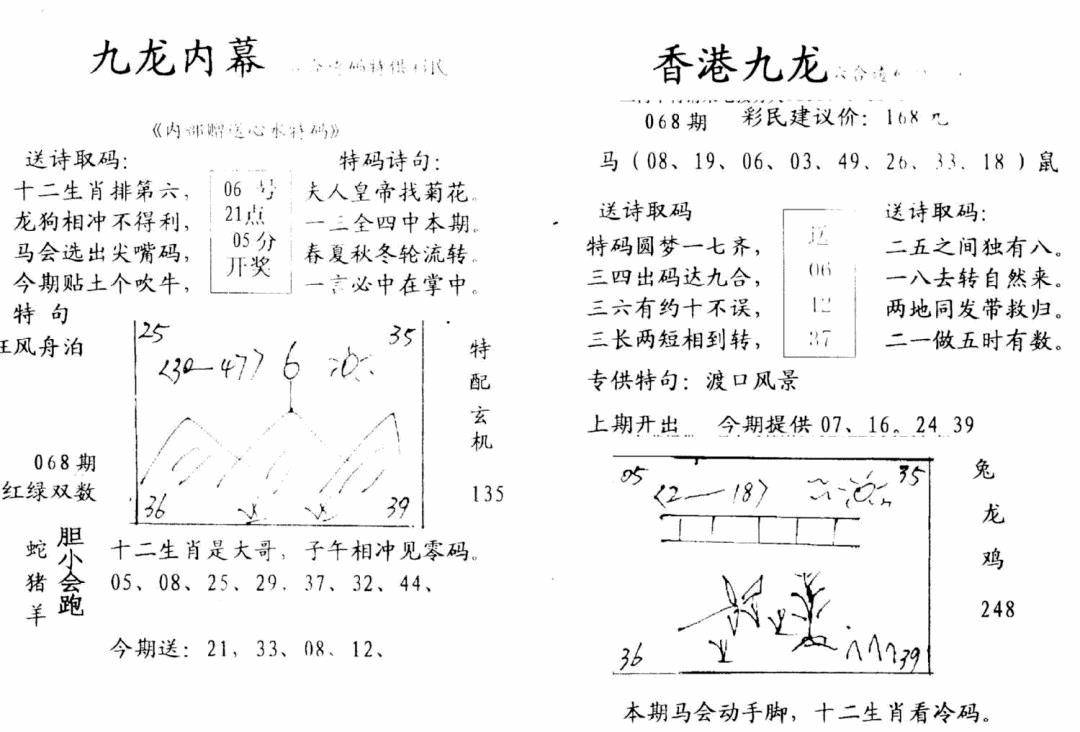 九龙内幕
《内部赠送心水特码》
送诗取码：
十二生肖排第六，
龙狗相冲不得利，
马会选出尖嘴码，
今期贴土个吹牛，
06 号
21点
05分
开奖
特码诗句：
夫人皇帝找菊花。
一三全四中本期。
春夏秋冬轮流转。
一言必中在掌中。
特句
狂风舟泊
068期
红绿双数
25
35
<30—47> 6
36
39
特配玄机
135
蛇
猪
羊
胆小会跑
十二生肖是大哥，子午相冲见零码。
05、08、25、29、37、32、44、
今期送：21，33、08、12、
香港九龙
068期 彩民建议价：168元
马（08、19、06、03、49、26、33、18）鼠
送诗取码
特码圆梦一七齐，
三四出码达九合，
三六有约十不误，
三长两短相到转，
送
06
12
37
送诗取码：
二五之间独有八。
一八去转自然来。
两地同发带救归。
二一做五时有数。
专供特句：渡口风景
上期开出 今期提供 07、16。24 39
05
35
<2—18>
36
39
兔
龙
鸡
248
本期马会动手脚，十二生肖看冷码。